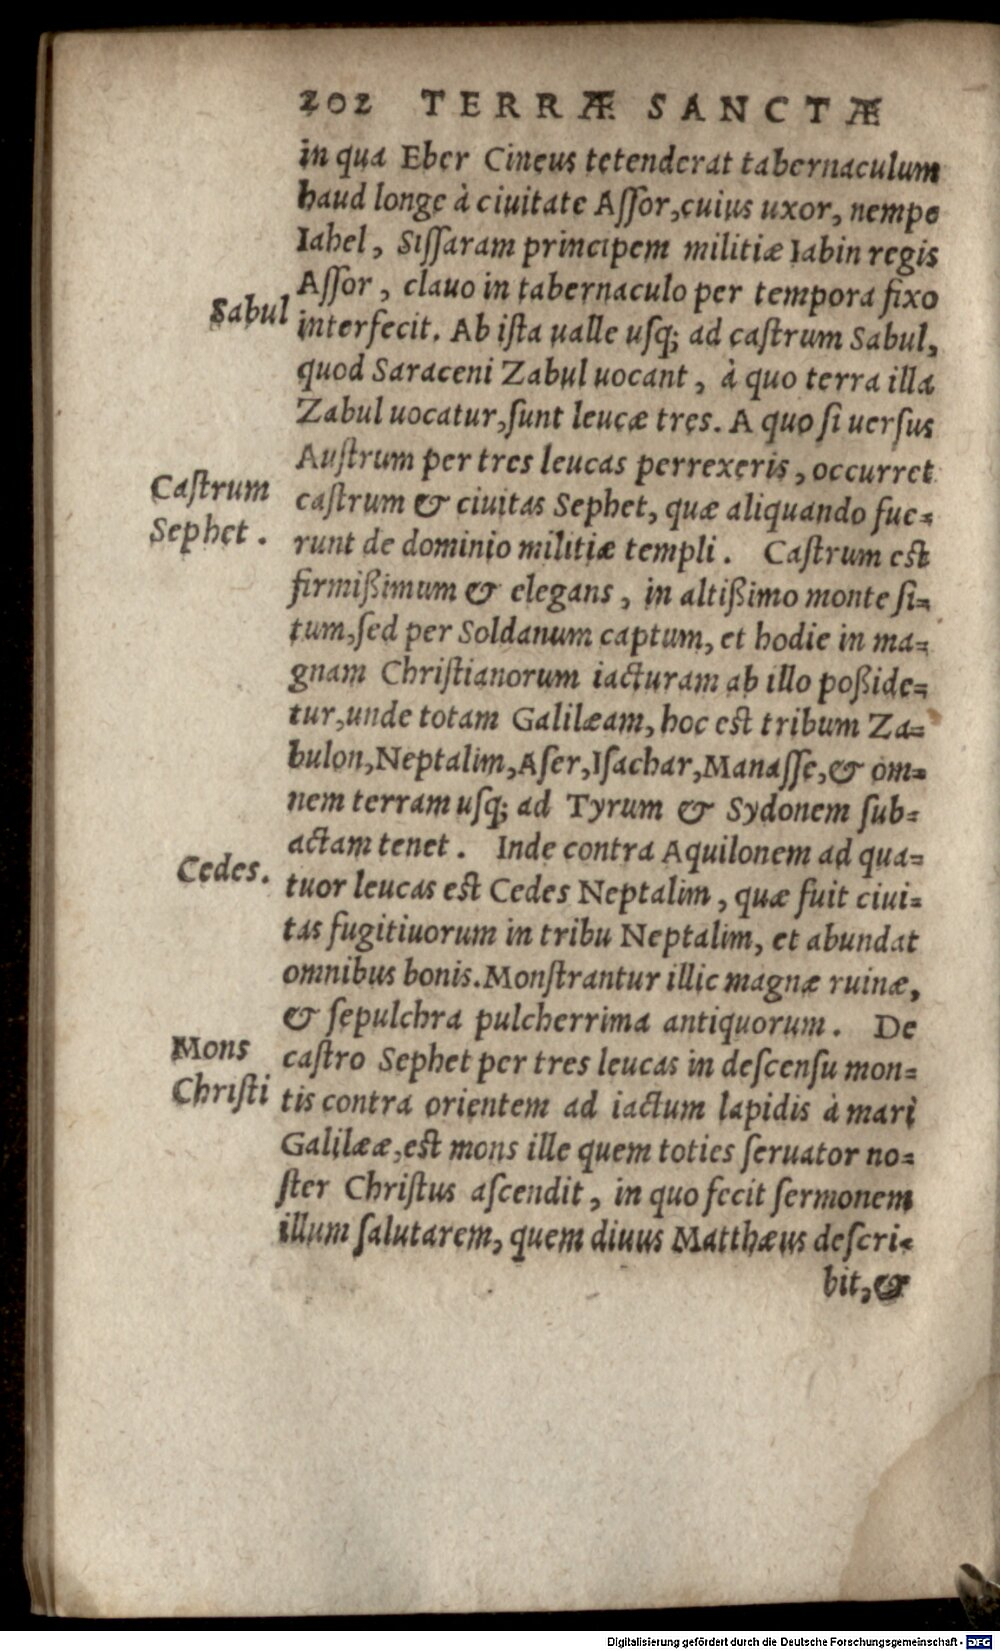 202 TERRÆ SANCTÆ
in qua Eber Cineus tetenderat tabernaculum
haud longe à ciuitate Aſſor, cuius uxor, nempe
Iahel, Siſſaram principem militiæ Iabin regis
Aſſor, clauo in tabernaculo per tempora fixo
Sabul
interfecit. Ab iſta ualle uſq; ad caſtrum Sabul,
quod Saraceni Zabul uocant, à quo terra illa
Zabul uocatur, ſunt leucæ tres. A quo ſi uerſus
Auſtrum per tres leucas perrexeris, occurret
Caſtrum
Sephet.
caſtrum & ciuitas Sephet, quæ aliquando fue=
runt de dominio militiæ templi. Caſtrum eſt
firmißimum & elegans, in altißimo monte ſi=
tum, ſed per Soldanum captum, et hodie in ma=
gnam Chriſtianorum iacturam ab illo poßide=
tur, unde totam Galilæam, hoc eſt tribum Za=
bulon, Neptalim, Aſer, Iſachar, Manaſſe, & om=
nem terram uſq; ad Tyrum & Sydonem ſub=
actam tenet. Inde contra Aquilonem ad qua=
Cedes.
tuor leucas eſt Cedes Neptalim, quæ fuit ciui=
tas fugitiuorum in tribu Neptalim, et abundat
omnibus bonis. Monſtrantur illic magnæ ruinæ,
& ſepulchra pulcherrima antiquorum. De
Mons
Chriſti
caſtro Sephet per tres leucas in deſcenſu mon=
tis contra orientem ad iactum lapidis à mari
Galilææ, eſt mons ille quem toties ſeruator no=
ſter Chriſtus aſcendit, in quo fecit ſermonem
illum ſalutarem, quem diuus Matthæus deſcri=
bit, &
Digitalisierung gefördert durch die Deutsche Forschungsgemeinschaft - DFG